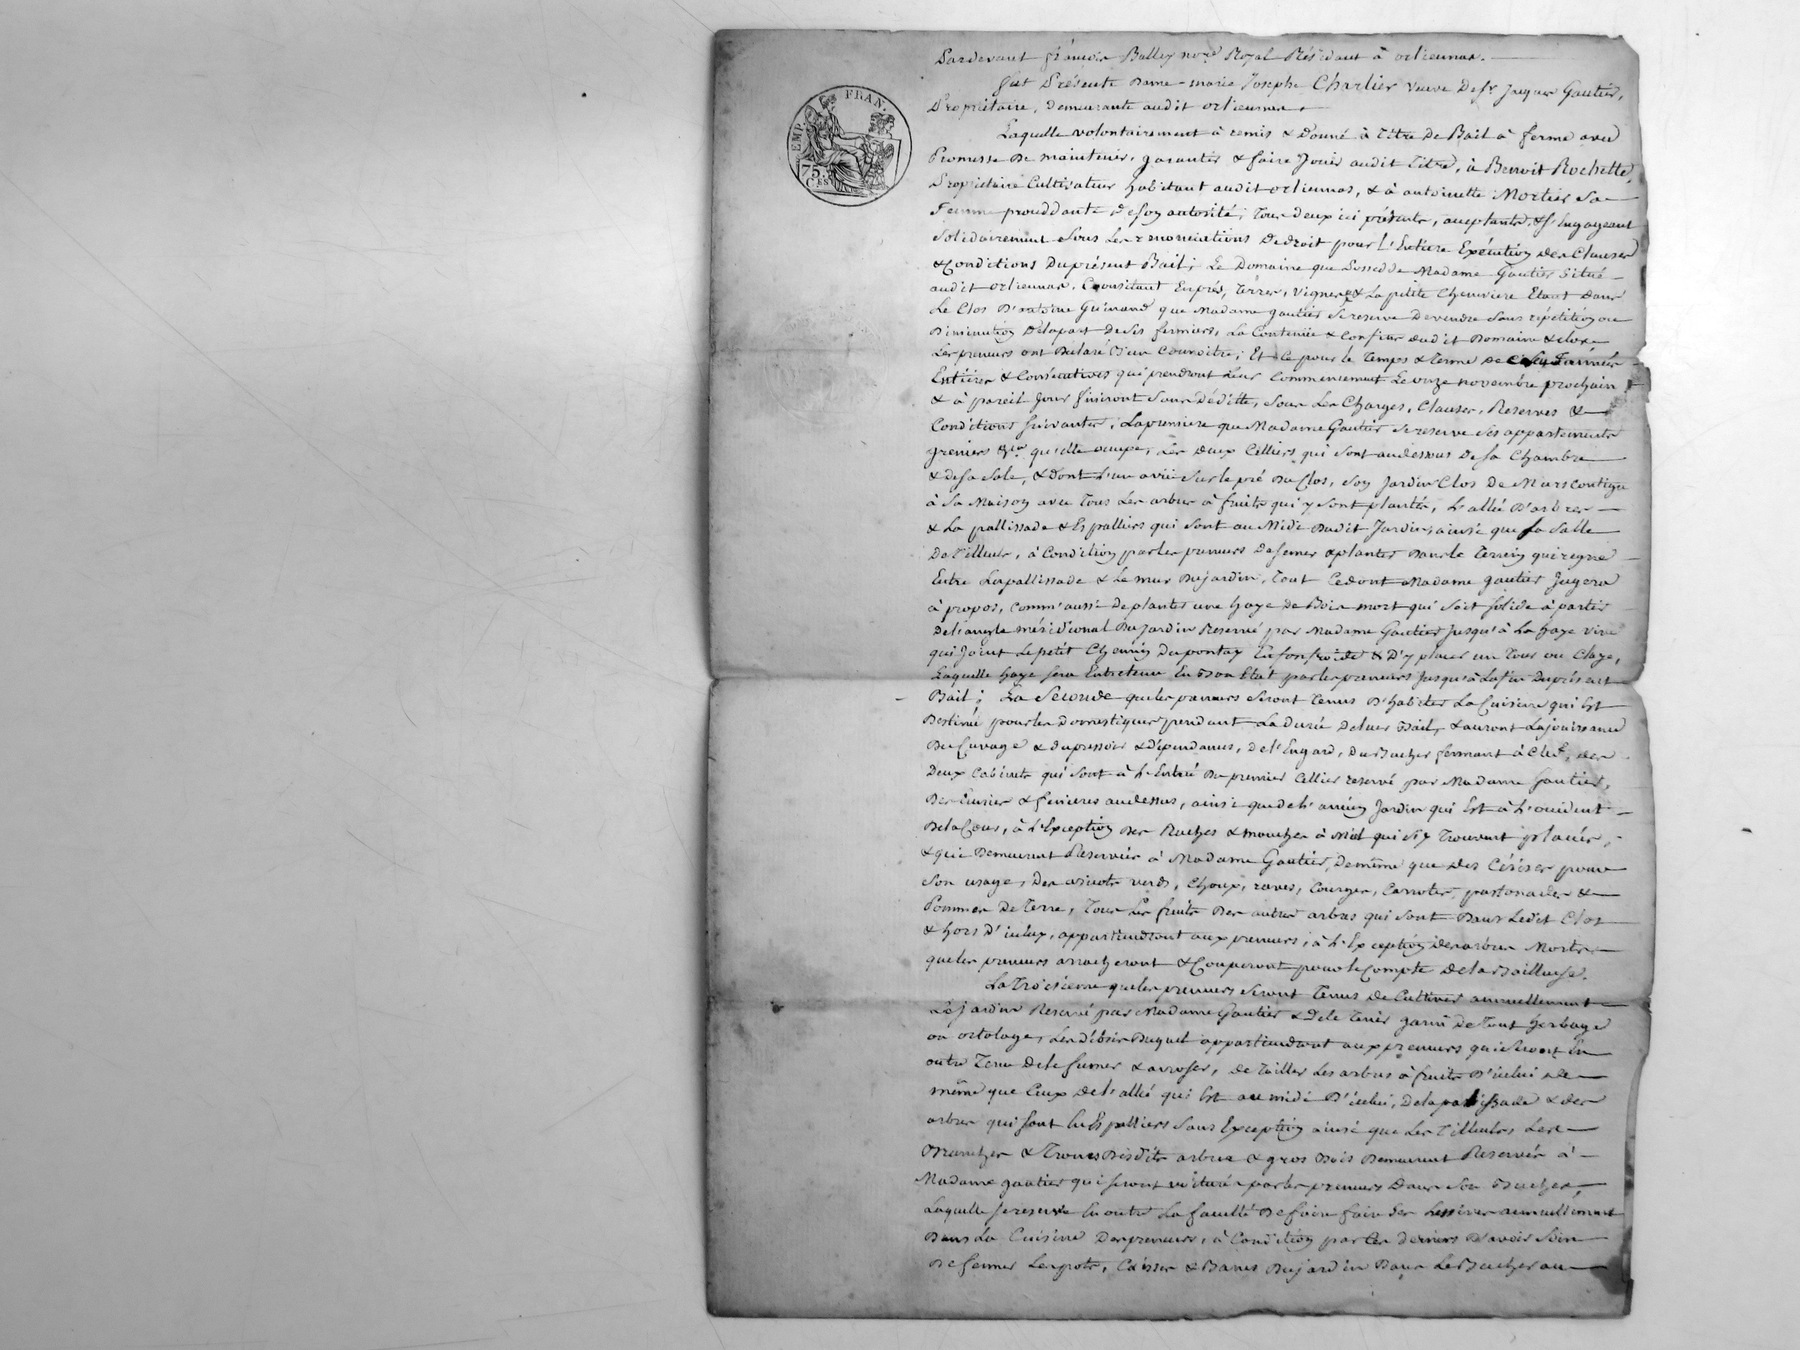 EMP. FRAN.
75.
Ces
Pardevant françois Balley nore Royal Résidant à orliennas.
fut Présente Dame marie Josephe Charlier Veuve de sr Jaques Gautier,
Propriétaire, demeurante audit orliennas.
Laquelle volontairement à remis & Donné à Titre De Bail à ferme avec
Promesse De maintenir, garantir & faire Jouir audit Titre, à Benoit Rochette,
Propriétaire Cultivateur habitant audit orliennas, & à antoinette Mortier Sa
Femme procédante de son autorité, Tous deux ici présents, acceptants, & s'Engageant
Solidairement Sous Les renonciations de droit pour l'Entière Exécution des Clauses
& Conditions Du présent Bail; Le Domaine que Possedde Madame Gautier Situé
audit orliennas, Consistant En prés, Terres, Vignes, & La petite Cheneviere Etant Dans
Le Clos D'antoine Guinand que Madame gautier se reserve De vendre Sans répétition ou
Diminution De la part de ses fermiers, La Contenüe & Confins dudit Domaine & clos
Les preneurs ont Déclaré Bien Connoitre; Et Ce pour le Temps & Terme De Cinq années
Entières & Consécutives qui prendront leur Commencement Le onze novembre prochain
& à pareil Jour finiront Sans Déditte, Sous Les Charges, Clauses, Reserves &
Conditions suivantes; La premiere que Madame Gautier se reserve ses appartements
greniers &ca qu'elle occupe, Les deux Celliers qui sont audessous de sa Chambre
& de sa Sale, & dont l'un a vüe sur le pré Du Clos, son Jardin Clos De Murs Contigu
à Sa Maison avec Tous Les arbres à fruits qui y sont plantés, L'allée D'arbres
& La pallissade & Espalliers qui sont au Midi Dudit Jardin, ainsi que la Salle
De Tilleuls, à Condition par les preneurs De semer & planter Dans le Terrein qui regne
Entre La pallissade & Le mur Du jardin, Tout Ce dont Madame gautier Jugera
à propos, Comm'aussi De planter une haye de Bois mort qui soit solide à partir
De l'angle méridional Du Jardin Reservé par Madame Gautier Jusqu'à La haye vive
qui Joint Le petit Chemin Du pontay En fonfroide & D'y placer un Tour ou Claye,
Laquelle haye sera Entretenue En Bon Etat par les preneurs Jusqu'à La fin Du présent
Bail; La Seconde que les preneurs Seront Tenus D'habiter La Cuisine qui Est
Destinée pour les Domestiques pendant La Durée De leur Bail, & auront La jouissance
Du Cuvage & du pressoir & dépendances, De l'Engard, Du Bucher fermant à Clef, des
Deux Cabinets qui sont à l'Entrée Du premier Cellier reservé par Madame Gautier,
Des Ecuries & fenieres audessus, ainsi que de l'ancien Jardin qui Est à l'occident
De la Cour, à l'Exception Des Ruches & mouches à Miel qui s'y Trouvent placées,
& qui Demeurent Reservées à Madame Gautier, De même que Des Cérises pour
Son usage, Des aricots verds, Choux, raves, Courges, Carrotes, pastonades &
Pommes de Terre, Tous Les fruits Des autres arbres qui sont Dans Ledit Clos
& hors D'iceluy, appartiendront aux preneurs, à l'Exception des arbres Morts
que les preneurs arracheront & Couperont pour le Compte De la Bailleuse.
La Troisième que les preneurs seront Tenus de Cultiver annuellement
Le jardin Reservé par Madame Gautier & De le Tenir garni de Tout herbage
ou ortolage, Les débris Duquel appartiendront aux preneurs qui seront En
outre Tenu de le fumer & arroser, de Tailler Les arbres à fruits D'icelui De
même que Ceux de l'allée qui Est au midi D'icelui, De la palissade & des
arbres qui sont En Espalliers Sans Exception ainsi que Les Tilleuls Les
Branches & Troncs Desdits arbres & gros Bois Demeurent Reservés à
Madame gautier qui seront voiturés par les preneurs Dans Son Bucher,
Laquelle se reserve En outre La faculté De faire faire ses Lessives annuellement
Dans La Cuisine Des preneurs, à Condition par Ces Derniers D'avoir Soin
De fermer Les pots, Caisses & Bancs Du jardin Dans Le Bucher au